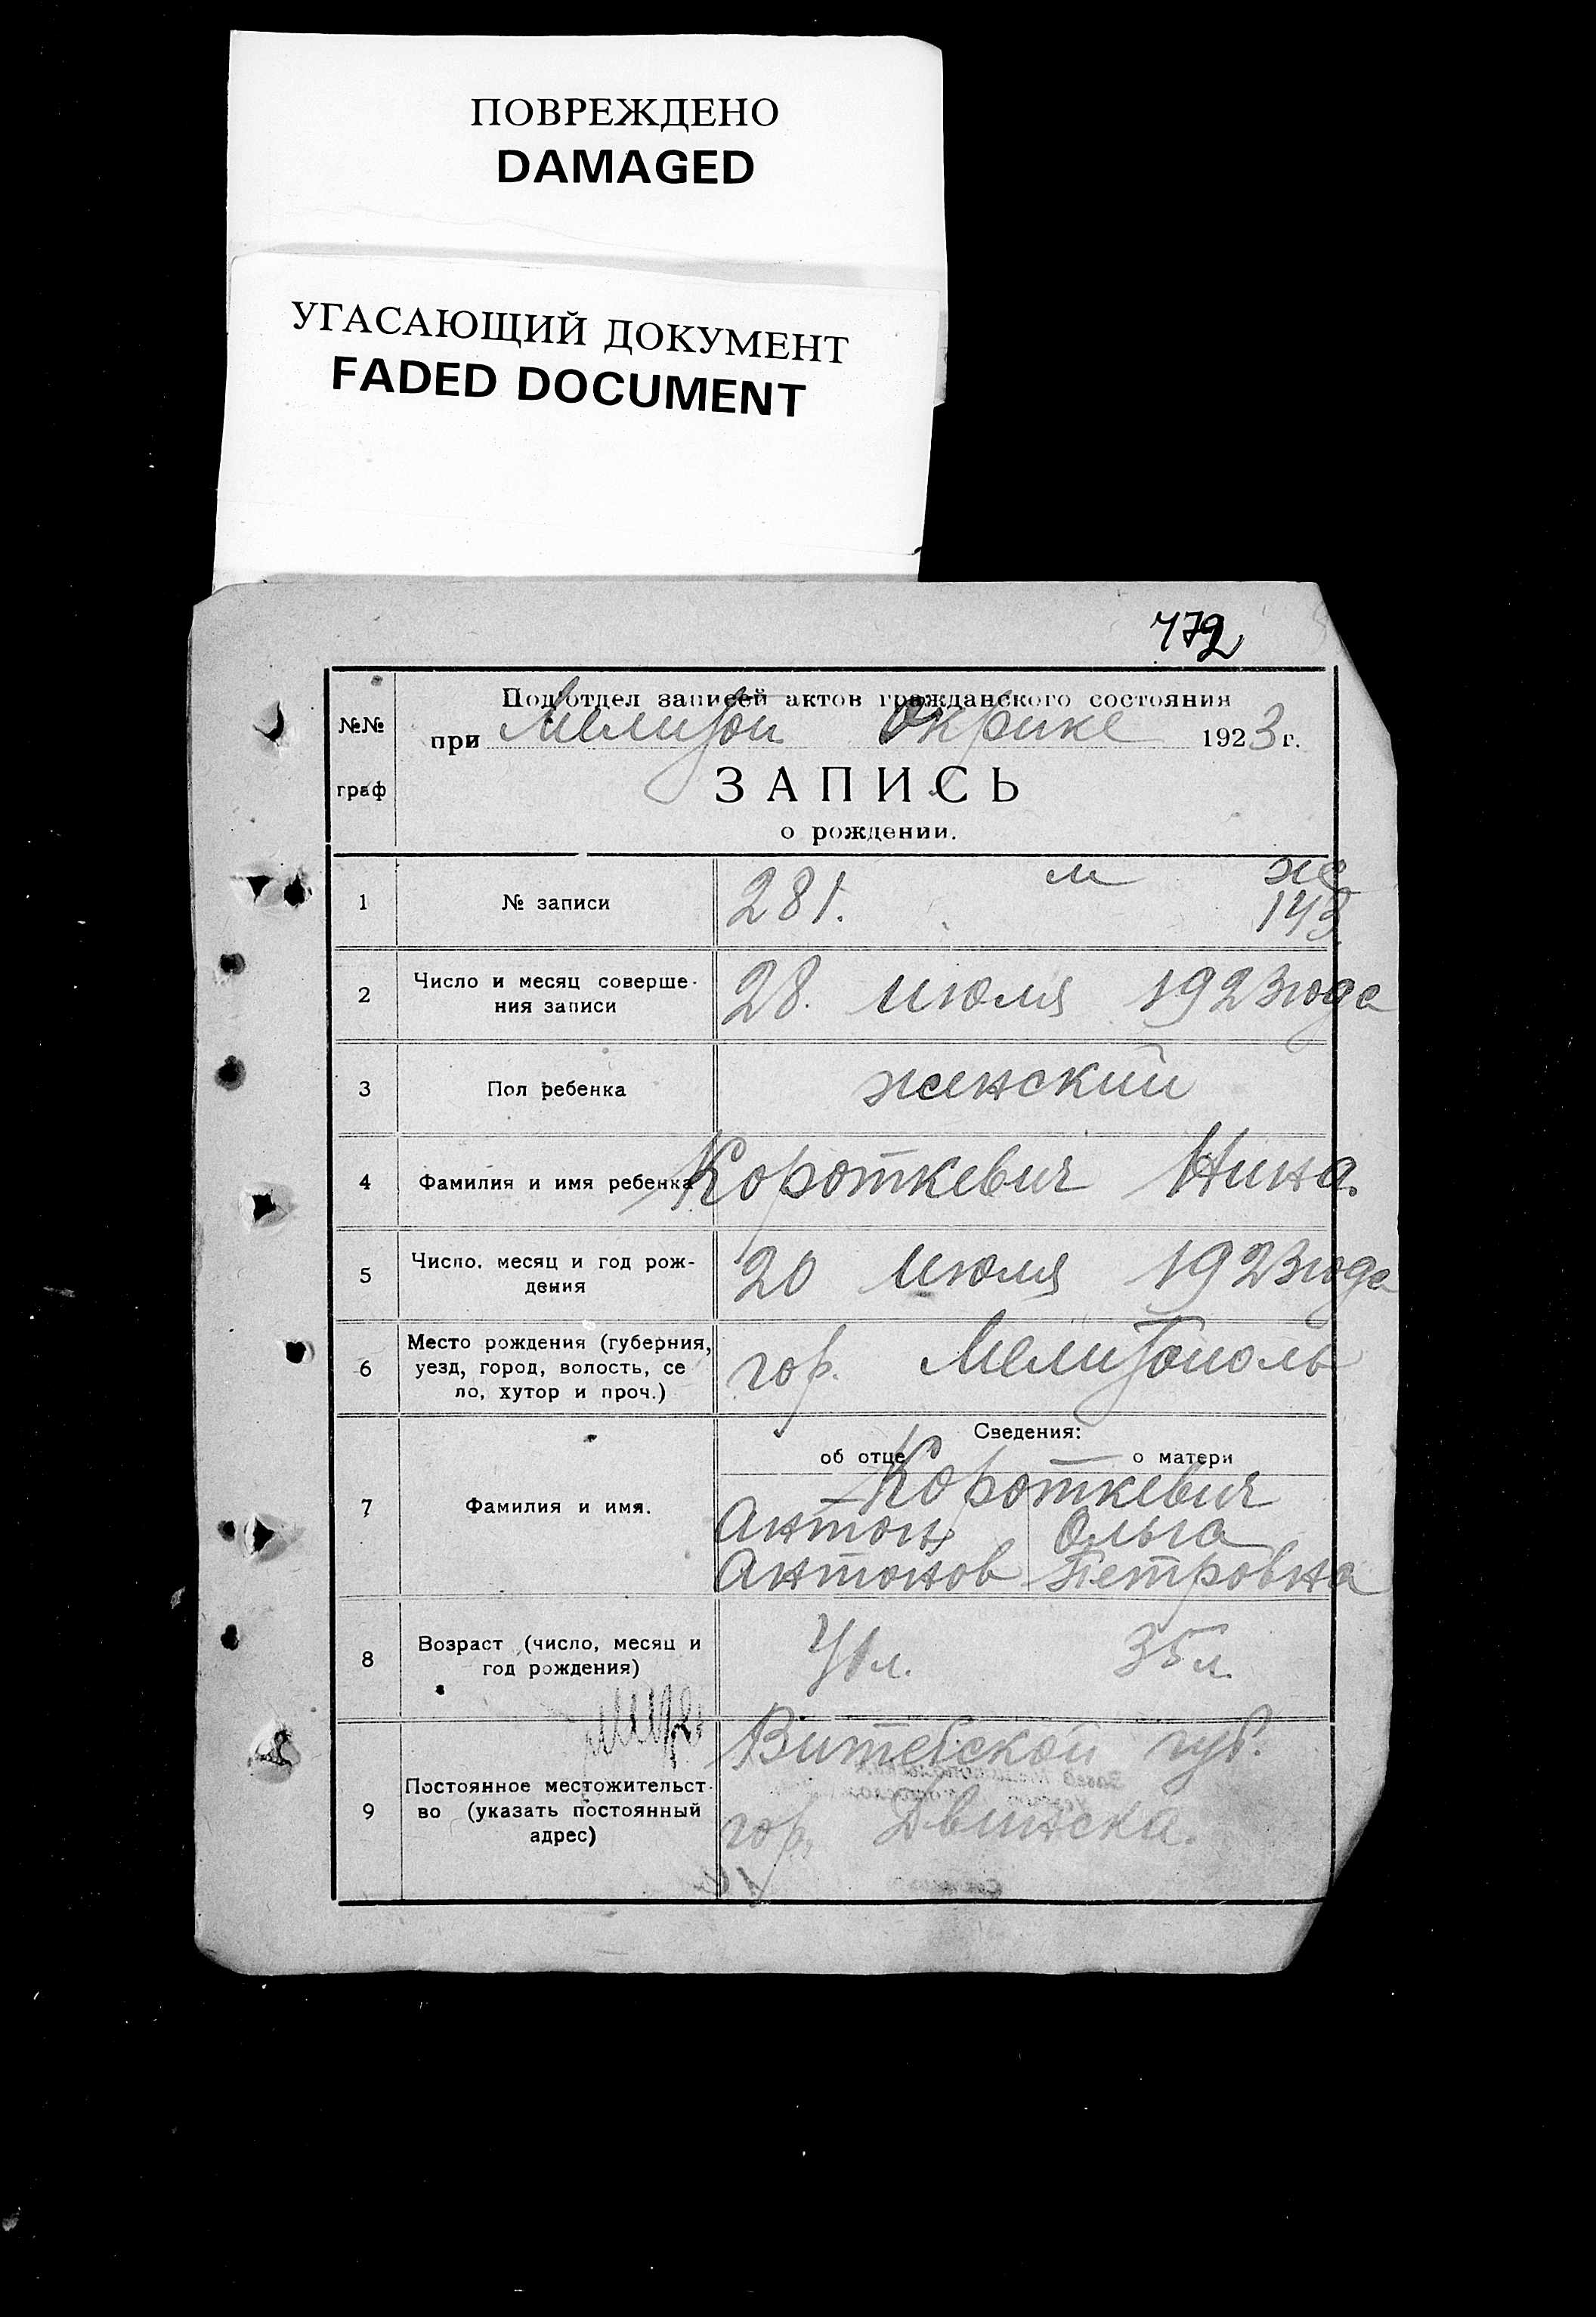 ПОВРЕЖДЕНО
DAMAGED
УГАСАЮЩИЙ ДОКУМЕНТ
FADED DOCUMENT
472
№№
граф
Подотдел записей актов гражданского состояния
при Мелитоп Окрике 1923 г.
ЗАПИСЬ
о рождении.
1 № записи 281. м ж
143
2 Число и месяц соверше-
ния записи 28. июля 1923 года
3 Пол ребенка женский
4 Фамилия и имя ребенка Короткевич Нина.
5 Число, месяц и год рож-
дения 20 июля 1923 года
6 Место рождения (губерния,
уезд, город, волость, се
ло, хутор и проч.) гор. Мелитополь
Сведения:
об отце о матери
7 Фамилия и имя. Короткевич
Антон Ольга
Антонов Петровна
8 Возраст (число, месяц и
год рождения) 41 л. 35 л.
9 Постоянное местожительст-
во (указать постоянный
адрес) Витебской губ.
гор. Двинска.